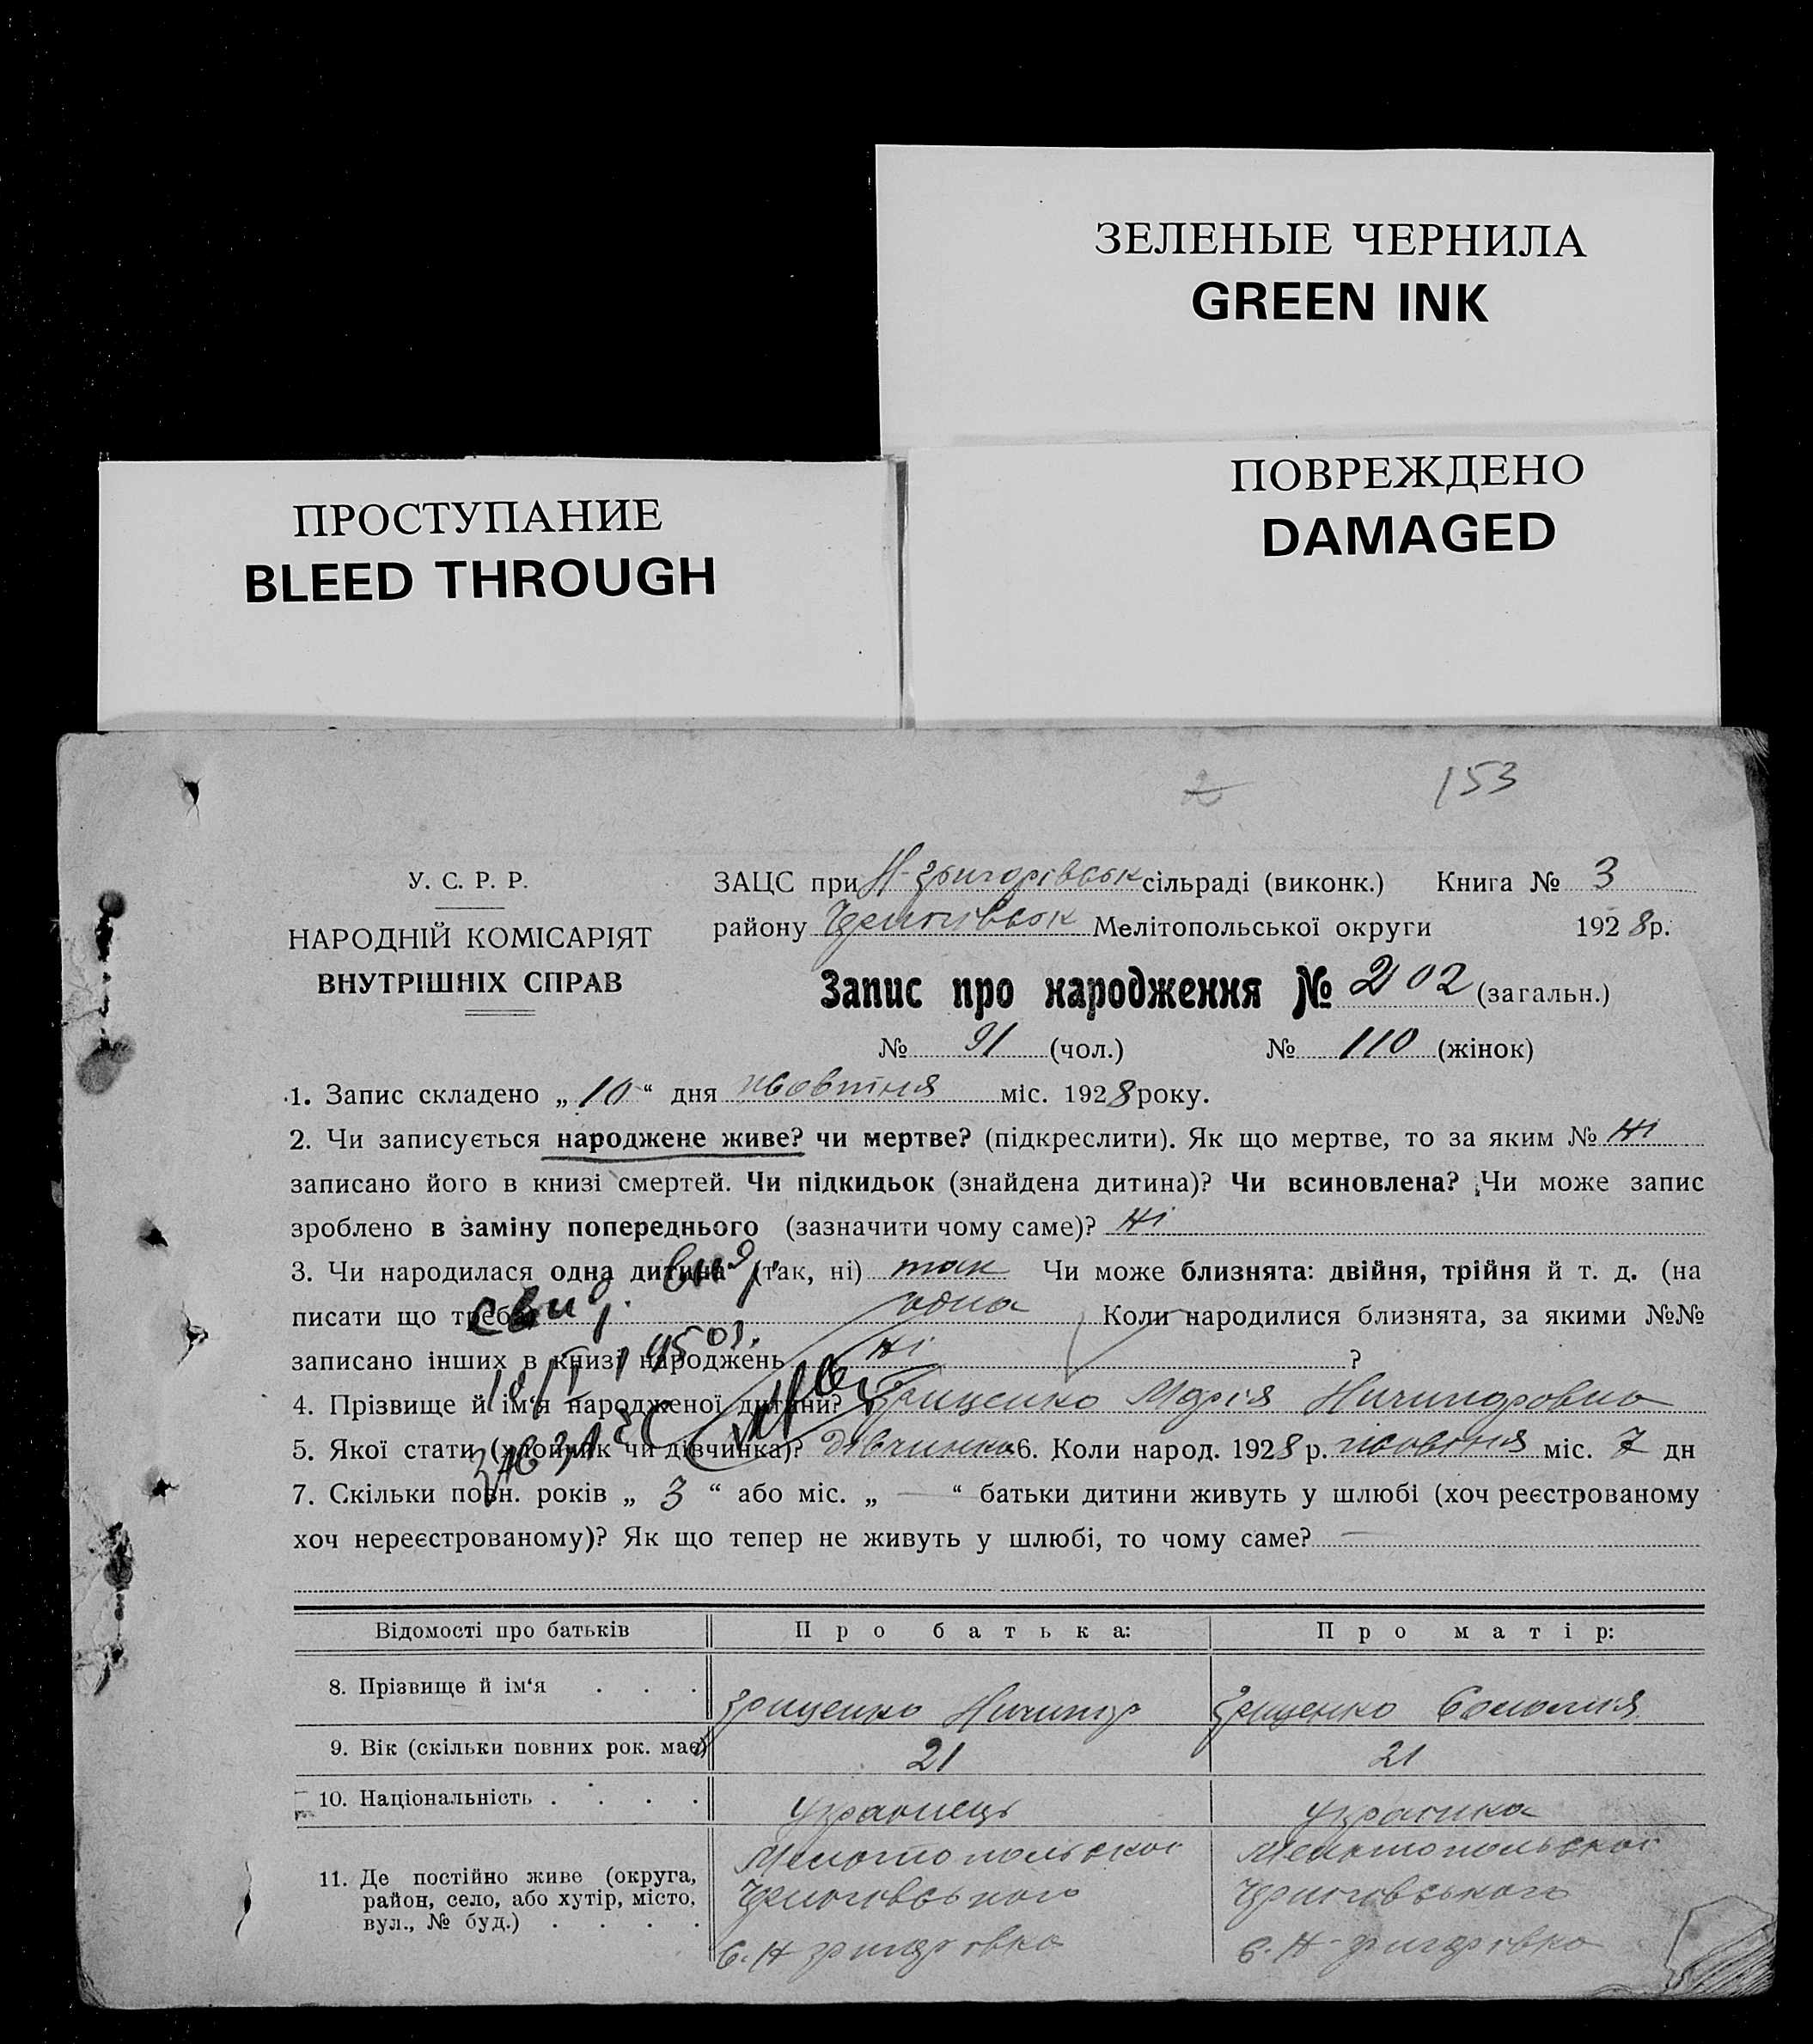 ЗЕЛЕНЫЕ ЧЕРНИЛА
GREEN INK
ПОВРЕЖДЕНО
DAMAGED
ПРОСТУПАНИЕ
BLEED THROUGH
2
153
У. С. Р. Р.
НАРОДНІЙ КОМІСАРІЯТ
ВНУТРІШНІХ СПРАВ
ЗАЦС при Н-Григорівськ сільраді (виконк.) Книга № 3
району Чернигівськ Мелітопольської округи 1928 р.
Запис про народження № 202 (загальн.)
№ 91 (чол.) № 110 (жінок)
1. Запис складено „ 10 “ дня жовтня міс. 1928 року.
2. Чи записується народжене живе? чи мертве? (підкреслити). Як що мертве, то за яким № Ні
записано його в книзі смертей. Чи підкидьок (знайдена дитина)? Чи всиновлена? Чи може запис
зроблено в заміну попереднього (зазначити чому саме)? Ні
3. Чи народилася одна дитина (так, ні) так Чи може близнята: двійня, трійня й т. д. (на
писати що треба) одна Коли народилися близнята, за якими №№
записано інших в книзі народжень Ні ?
4. Прізвище й ім‘я народженої дитини? Грищенко Марія Ничипоровна
5. Якої стати (хлопчик чи дівчинка)? дівчинка 6. Коли народ. 1928 р. жовтня міс. 7 дн
7. Скільки повн. років „ 3 “ або міс. „ — “ батьки дитини живуть у шлюбі (хоч реєстрованому
хоч нереєстрованому)? Як що тепер не живуть у шлюбі, то чому саме? —
Відомості про батьків Про батька: Про матір:
8. Прізвище й ім‘я . . . Грищенко Ничипор Грищенко
9. Вік (скільки повних рок. має) 21 21
10. Національність . . . . Українець Українка
11. Де постійно живе (округа, район, село, або хутір, місто, вул., № буд.) . . . .
Мелітопольської Мелітопольської
Чернигівського Чернигівського
с. Н Григорівка с. Н-Григорівка